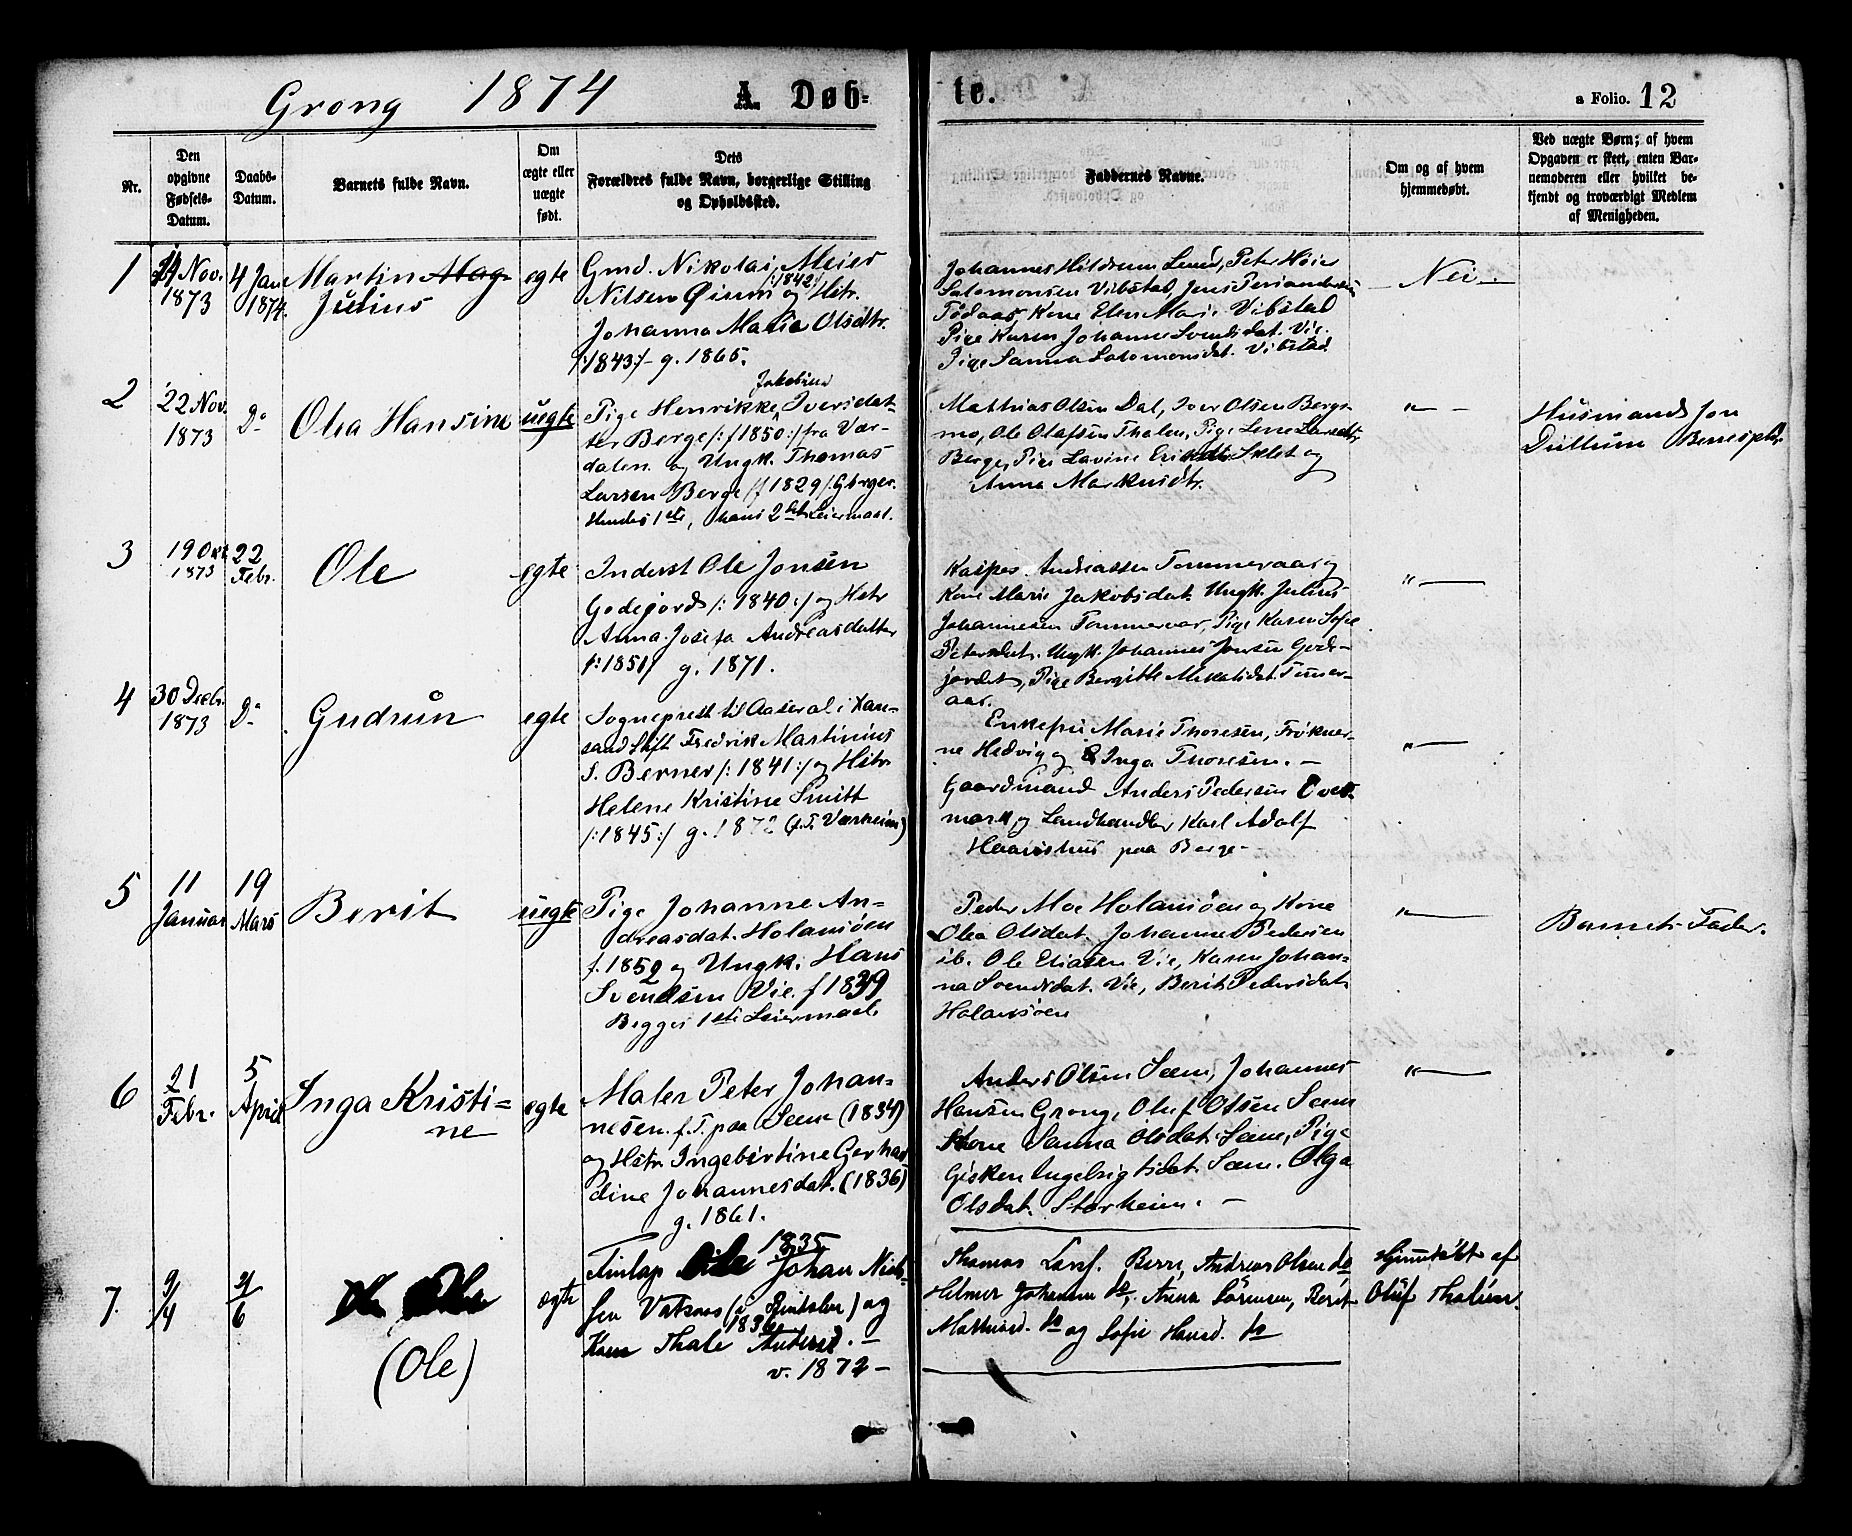 Grong 1874 A. Døb-
te.
a Folio. 12
Nr.
Den
opgivne
Fødsels-
Datum.
Daabs-
Datum.
Barnets fulde Navn.
Om
ægte eller
uægte
født.
Dets
Forældres fulde Navn, borgerlige Stilling
og Opholdssted.
Faddernes Navne.
Om og af hvem
hjemmedøbt.
Ved uægte Børn; af hvem
Opgaven er skeet, enten Bar-
nemoderen eller hvilket be-
kjendt og troværdigt Medlem
af Menigheden.
1
Nov.
1873
4 Jan
1874.
Martin Mag-
Julius
egte
Gmd. Nikolai Meier
/:1842:/
Nilsen Øium og Hstr.
Johanna Maria Olsdtr.
/:1843:/ g. 1865.
Johannes Hildrum Lened, Peter Høier
Salomonsen Vibstad, Jens
Kone Elen Marie Vibstad
Pige Karen Johanne Svendsdat. Vie.
Pige Sanna Salomonsdat. Vibstad
Nei.
2
22 Nov.
1873
Do
Olea Hansine
uegte
Jakobine
Pige Henrikke Iversdat-
ter Berge /: f 1850:/ fra Vær-
dalen og Ungk. Thomas
Larsen Berge /f 1829/.
Hendes 1ste, hans 2det Leiermaal.
Matthias Olsen Dal, Iver Olsen Bergs-
mo, Ole Olafsen Thalen, Pige Lene Larsdtr
Berge, Pige Lavine og
Anna Markusdtr.
"
Husmand Jon
Duttum
3
19 Okt
1873
22
Febr.
Ole
egte
Inderst Ole Jonsen
Godejord /: 1840:/ og Hstr
Anna Josefa Andreasdatter
/:1851/ g. 1871.
Kasper Andreassen Tømmeraas og
Kone Marie Jakobsdat. Ungk. Julius
Johannesen Tømmeraas, Pige Karen Sofie
Petersdat. Ungk. Johannes Jonsen Gode-
jordet, Pige Bergitte Tømer-
aas.
"
4
30 Decbr.
1873
Do
Gudrun
egte
Sogneprest til Aaseral i Kan-
sand Stift Fredrik Martinius
S. Berner /: 1841:/ og Hstr
Helene Kristine Smitt
/:1845:/ g. 1872 (f.T. Værheim)
Enkefru Marie Thoresen, Frøkner-
ne Hedvig og Inga Thoresen. -
Gaardmand Anders Pedersen
mark og Landhandler Karl Adolf
paa Berge -
"
5
11
Januar
19
Mars
Berit
uegte
Pige Johanne An-
dreasdat. Holamsøen
f. 1852 og Ungk. Hans
Svendsen Vie. f 1839
Begges 1ste Leiermaal
Peder Moe Holamsøen og Kone
Olea Olsdat. Johannes Pedersen
ib. Ole Eliasen Vie, Karen Johan-
na Svendsdat. Vie, Berit Pedersdat.
Holamsøen
"
Barnets Fader.
6
21
Febr.
5
April
Inga Kristi-
ne
egte
Maler Peter Johan-
nesen f.T. paa Sæm (1834)
og Hstr Ingebertine Gerhar-
dine Johannesdat. (1836)
g. 1861.
Anders Olsen Sæm, Johannes
Hansen Grong, Oluf Olsen Sæm
Kone Sanna Olsdat. Sæm, Pige
Gisken Ingebrigtsdat. Sæm. Olga
Olsdat. Storheim. -
"
7.
9/4
21/6
(Ole)
ægte
1835
Finlap Johan Niel-
sen og
1836
Kone Thale Andersd. -
v. 1872 -
Thomas Larsf. Berre, Andreas Olsen do
Helmer Johannes do, Anna Sörensen, Berit
Mathiasd. do og Sofie Hansd. do
Hjemmedöbt af
Oluf Thalin.